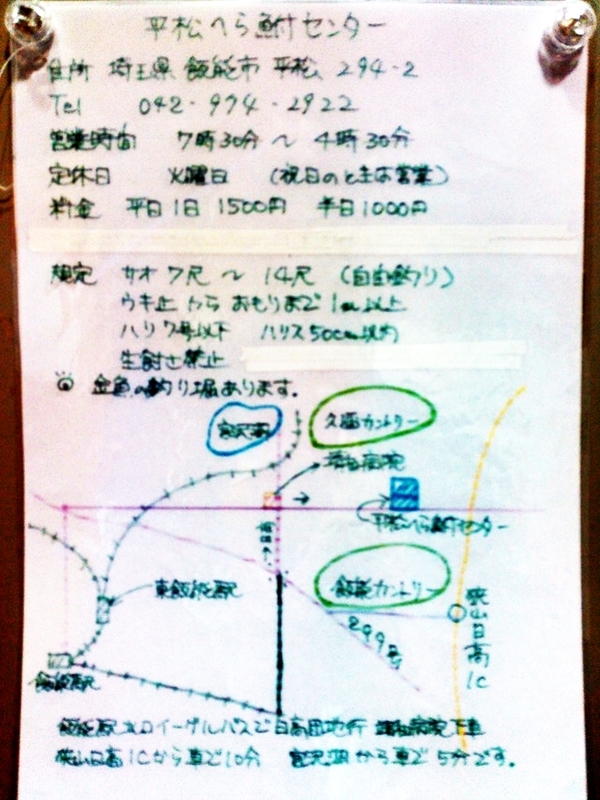 平松へら鮒センター
住所 埼玉県 飯能市 平松 294-2
Tel 042-974-2922
営業時間 7時30分 〜 4時30分
定休日 火曜日 (祝日のときは営業)
料金 平日1日 1500円 半日1000円
規定 サオ 7尺 〜 14尺 (自由釣り)
ウキ止からおもりまで 1m以上
ハリ 7号以下 ハリス 50cm以内
生餌さ禁止
◎ 金魚の釣り堀あります。
宮沢湖
久邇カントリー
病院
平松へら鮒センター
東飯能駅
飯能カントリー
299号
狭山日高IC
飯能駅
飯能駅 北口イーグルバスで 日高団地行 病院下車
狭山日高ICから車で10分 宮沢湖から車で5分です。